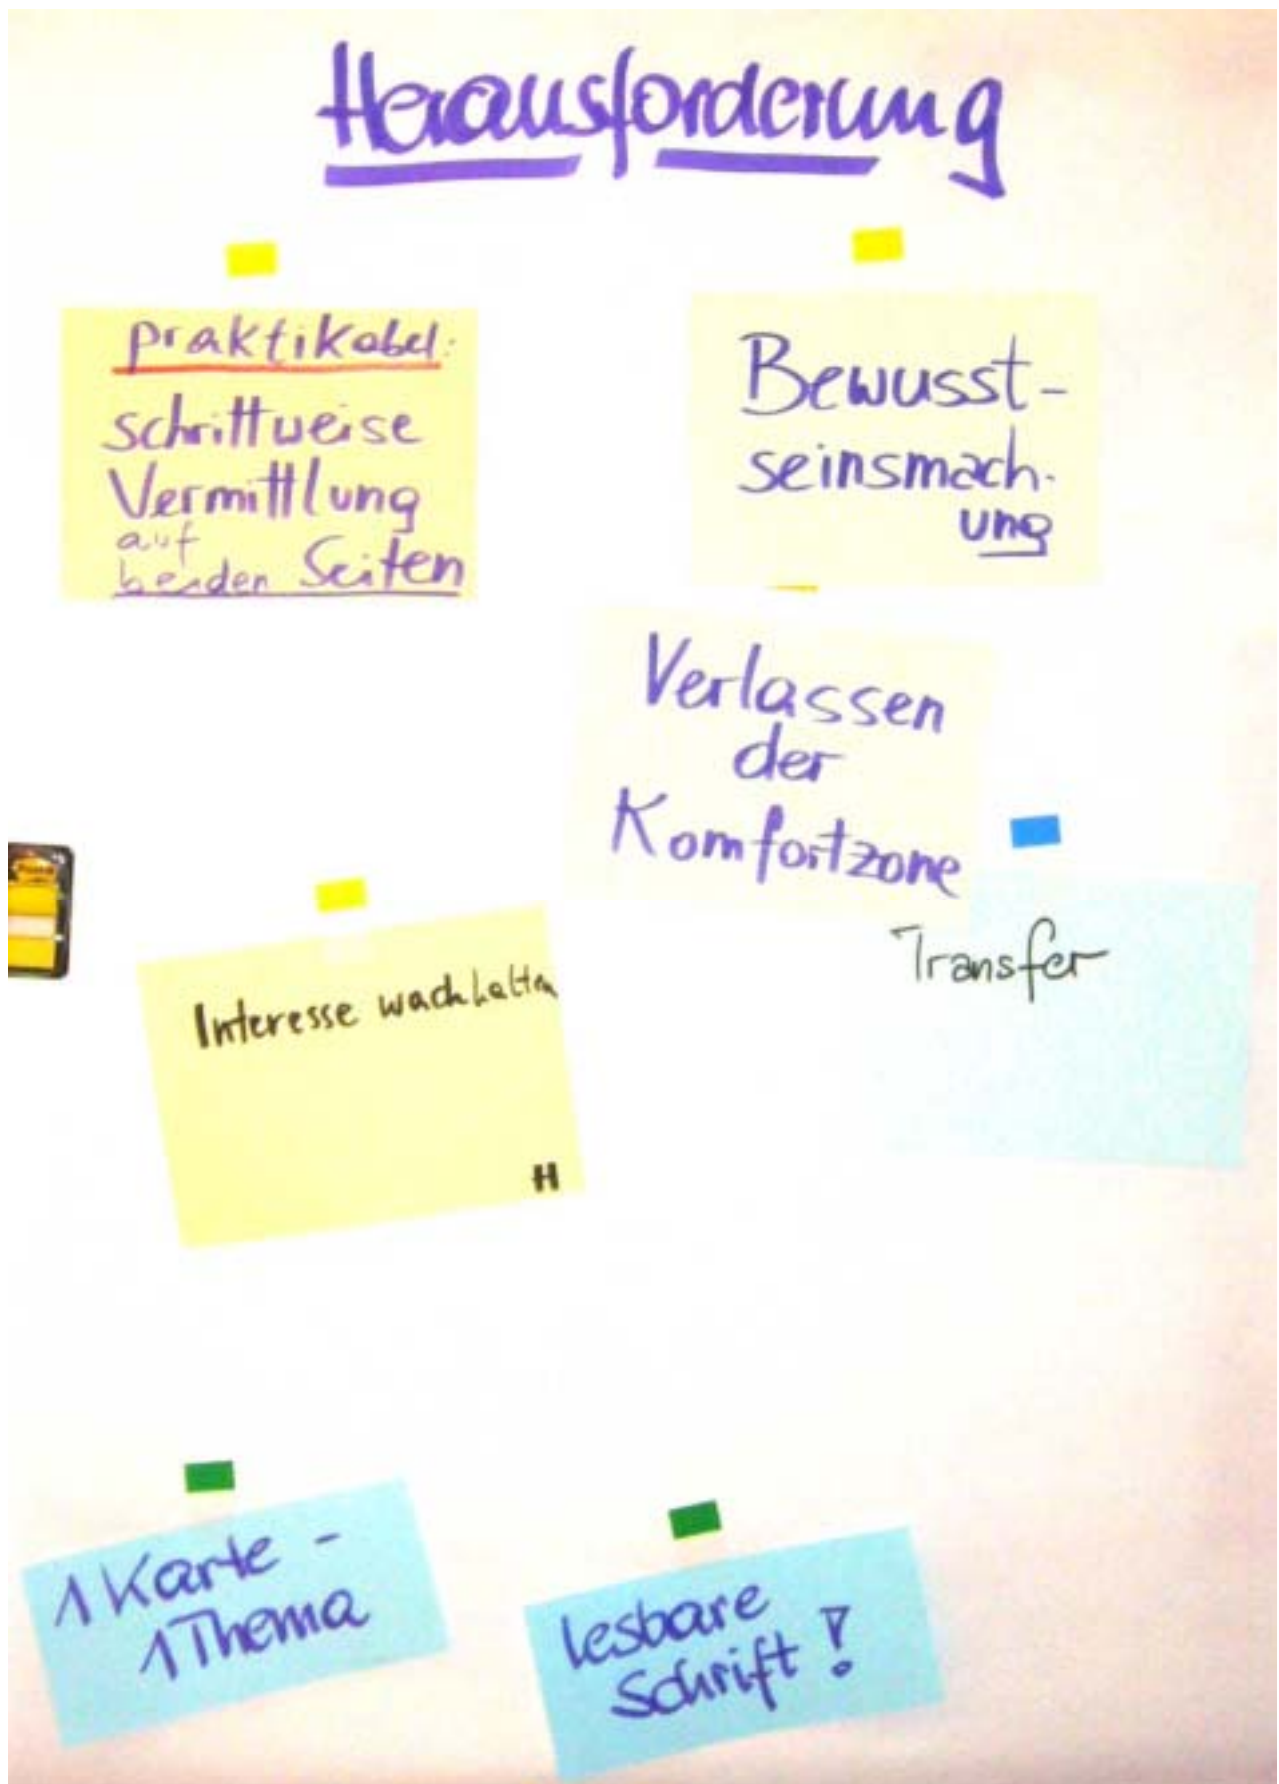 Herausforderung
praktikabel:
schrittweise
Vermittlung
auf
beiden Seiten
Bewusst-
seinsmach-
ung
Verlassen
der
Komfortzone
Transfer
Interesse wachhalten
H
1 Karte -
1 Thema
lesbare
Schrift!